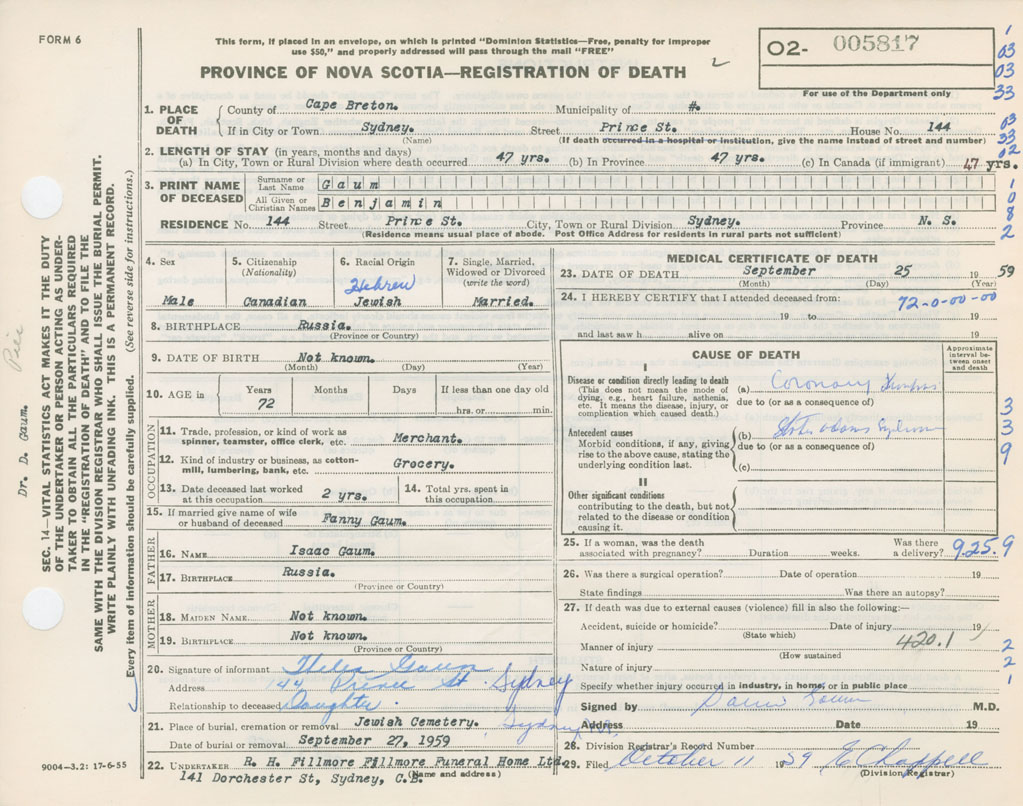 FORM 6
This form, if placed in an envelope, on which is printed "Dominion Statistics—Free, penalty for improper
use $50," and properly addressed will pass through the mail "FREE"
PROVINCE OF NOVA SCOTIA—REGISTRATION OF DEATH
02- 005817
For use of the Department only
1
03
03
33
03
33
02
1
0
8
2
1. PLACE OF DEATH
County of Cape Breton. Municipality of #.
If in City or Town Sydney. Street Prince St. House No. 144
(Name) (If death occurred in a hospital or institution, give the name instead of street and number)
2. LENGTH OF STAY (in years, months and days)
(a) In City, Town or Rural Division where death occurred 47 yrs. (b) In Province 47 yrs. (c) In Canada (if immigrant) 47 yrs.
3. PRINT NAME OF DECEASED
Surname or Last Name Gaum
All Given or Christian Names Benjamin
RESIDENCE No. 144 Street Prince St. City, Town or Rural Division Sydney. Province N. S.
(Residence means usual place of abode. Post Office Address for residents in rural parts not sufficient)
4. Sex Male
5. Citizenship (Nationality) Canadian
6. Racial Origin Hebrew Jewish
7. Single, Married, Widowed or Divorced (write the word) Married.
8. BIRTHPLACE Russia.
(Province or Country)
9. DATE OF BIRTH Not known.
(Month) (Day) (Year)
10. AGE in Years 72 Months Days If less than one day old
hrs. or min.
OCCUPATION
11. Trade, profession, or kind of work as spinner, teamster, office clerk, etc. Merchant.
12. Kind of industry or business, as cotton-mill, lumbering, bank, etc. Grocery.
13. Date deceased last worked at this occupation 2 yrs.
14. Total yrs. spent in this occupation
15. If married give name of wife or husband of deceased Fanny Gaum.
FATHER
16. NAME Isaac Gaum.
17. BIRTHPLACE Russia.
(Province or Country)
MOTHER
18. MAIDEN NAME Not known.
19. BIRTHPLACE Not known.
(Province or Country)
20. Signature of informant Gaum
Address 144 Prince St. Sydney
Relationship to deceased Daughter
21. Place of burial, cremation or removal Jewish Cemetery. Sydney
Date of burial or removal September 27, 1959
22. UNDERTAKER R. H. Fillmore Fillmore Funeral Home Ltd.
141 Dorchester St, Sydney, C.B.
(Name and address)
9004-3.2: 17-6-55
MEDICAL CERTIFICATE OF DEATH
23. DATE OF DEATH September 25 1959
(Month) (Day) (Year)
24. I HEREBY CERTIFY that I attended deceased from: 72-0-00-00
19 to 19
and last saw h alive on 19
CAUSE OF DEATH
Approximate interval between onset and death
I
Disease or condition directly leading to death
(This does not mean the mode of dying, e.g., heart failure, asthenia, etc. It means the disease, injury, or complication which caused death.)
(a) Coronary
due to (or as a consequence of)
Antecedent causes
Morbid conditions, if any, giving rise to the above cause, stating the underlying condition last.
(b)
due to (or as a consequence of)
(c)
II
Other significant conditions
contributing to the death, but not related to the disease or condition causing it.
3
3
9
25. If a woman, was the death associated with pregnancy? Duration weeks. Was there a delivery? 925.9
26. Was there a surgical operation? Date of operation 19
State findings Was there an autopsy?
27. If death was due to external causes (violence) fill in also the following:—
Accident, suicide or homicide? Date of injury 19
(State which)
Manner of injury 420.1
(How sustained
Nature of injury
2
2
1
Specify whether injury occurred in industry, in home, or in public place
Signed by M.D.
Address Date 19
28. Division Registrar's Record Number
29. Filed October 11 1959 E Chappell
(Division Registrar)
SEC. 14—VITAL STATISTICS ACT MAKES IT THE DUTY
OF THE UNDERTAKER OR PERSON ACTING AS UNDER-
TAKER TO OBTAIN ALL THE PARTICULARS REQUIRED
IN THE "REGISTRATION OF DEATH" AND TO FILE THE
SAME WITH THE DIVISION REGISTRAR WHO SHALL ISSUE THE BURIAL PERMIT.
WRITE PLAINLY WITH UNFADING INK. THIS IS A PERMANENT RECORD.
Every item of information should be carefully supplied. (See reverse side for instructions.)
Dr. D. Gaum.